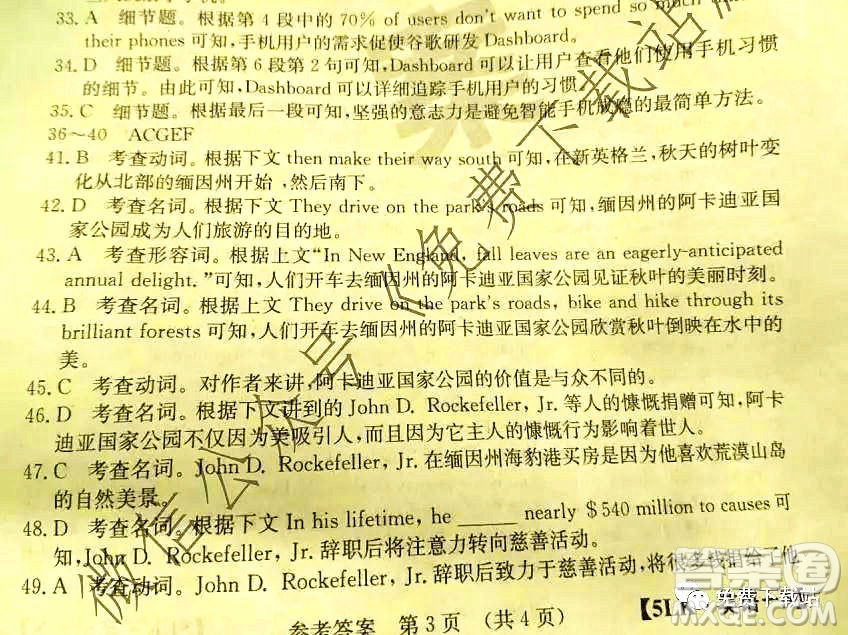 33. A 细节题。根据第 4 段中的 70% of users don't want to spend so
their phones 可知,手机用户的需求促使谷歌研发 Dashboard.
34. D 细节题。根据第 6 段第 2 句可知,Dashboard 可以让用户查看他们使用手机习惯
的细节。由此可知,Dashboard 可以详细追踪手机用户的习惯。
35. C 细节题。根据最后一段可知,坚强的意志力是避免智能手机成瘾的最简单方法。
36~40 ACGEF
41. B 考查动词。根据下文 then make their way south 可知,在新英格兰,秋天的树叶变
化从北部的缅因州开始,然后南下。
42. D 考查名词。根据下文 They drive on the park's roads 可知,缅因州的阿卡迪亚国
家公园成为人们旅游的目的地。
43. A 考查形容词。根据上文“In New England, fall leaves are an eagerly-anticipated
annual delight.”可知,人们开车去缅因州的阿卡迪亚国家公园见证秋叶的美丽时刻。
44. B 考查名词。根据上文 They drive on the park's roads, bike and hike through its
brilliant forests 可知,人们开车去缅因州的阿卡迪亚国家公园欣赏秋叶倒映在水中的
美。
45. C 考查动词。对作者来讲,阿卡迪亚国家公园的价值是与众不同的。
46. D 考查名词。根据下文讲到的 John D. Rockefeller, Jr. 等人的慷慨捐赠可知,阿卡
迪亚国家公园不仅因为美吸引人,而且因为它主人的慷慨行为影响着世人。
47. C 考查名词。John D. Rockefeller, Jr. 在缅因州海豹港买房是因为他喜欢荒漠山岛
的自然美景。
48. D 考查名词。根据下文 In his lifetime, he ______ nearly $540 million to causes 可
知,John D. Rockefeller, Jr. 辞职后将注意力转向慈善活动。
49. A 考查动词。John D. Rockefeller, Jr. 辞职后致力于慈善活动,将很多钱捐给了他
参考答案 第 3 页 (共 4 页)
微信公众号《免费下载站》
答案圈
MXQE.COM
免费下载站